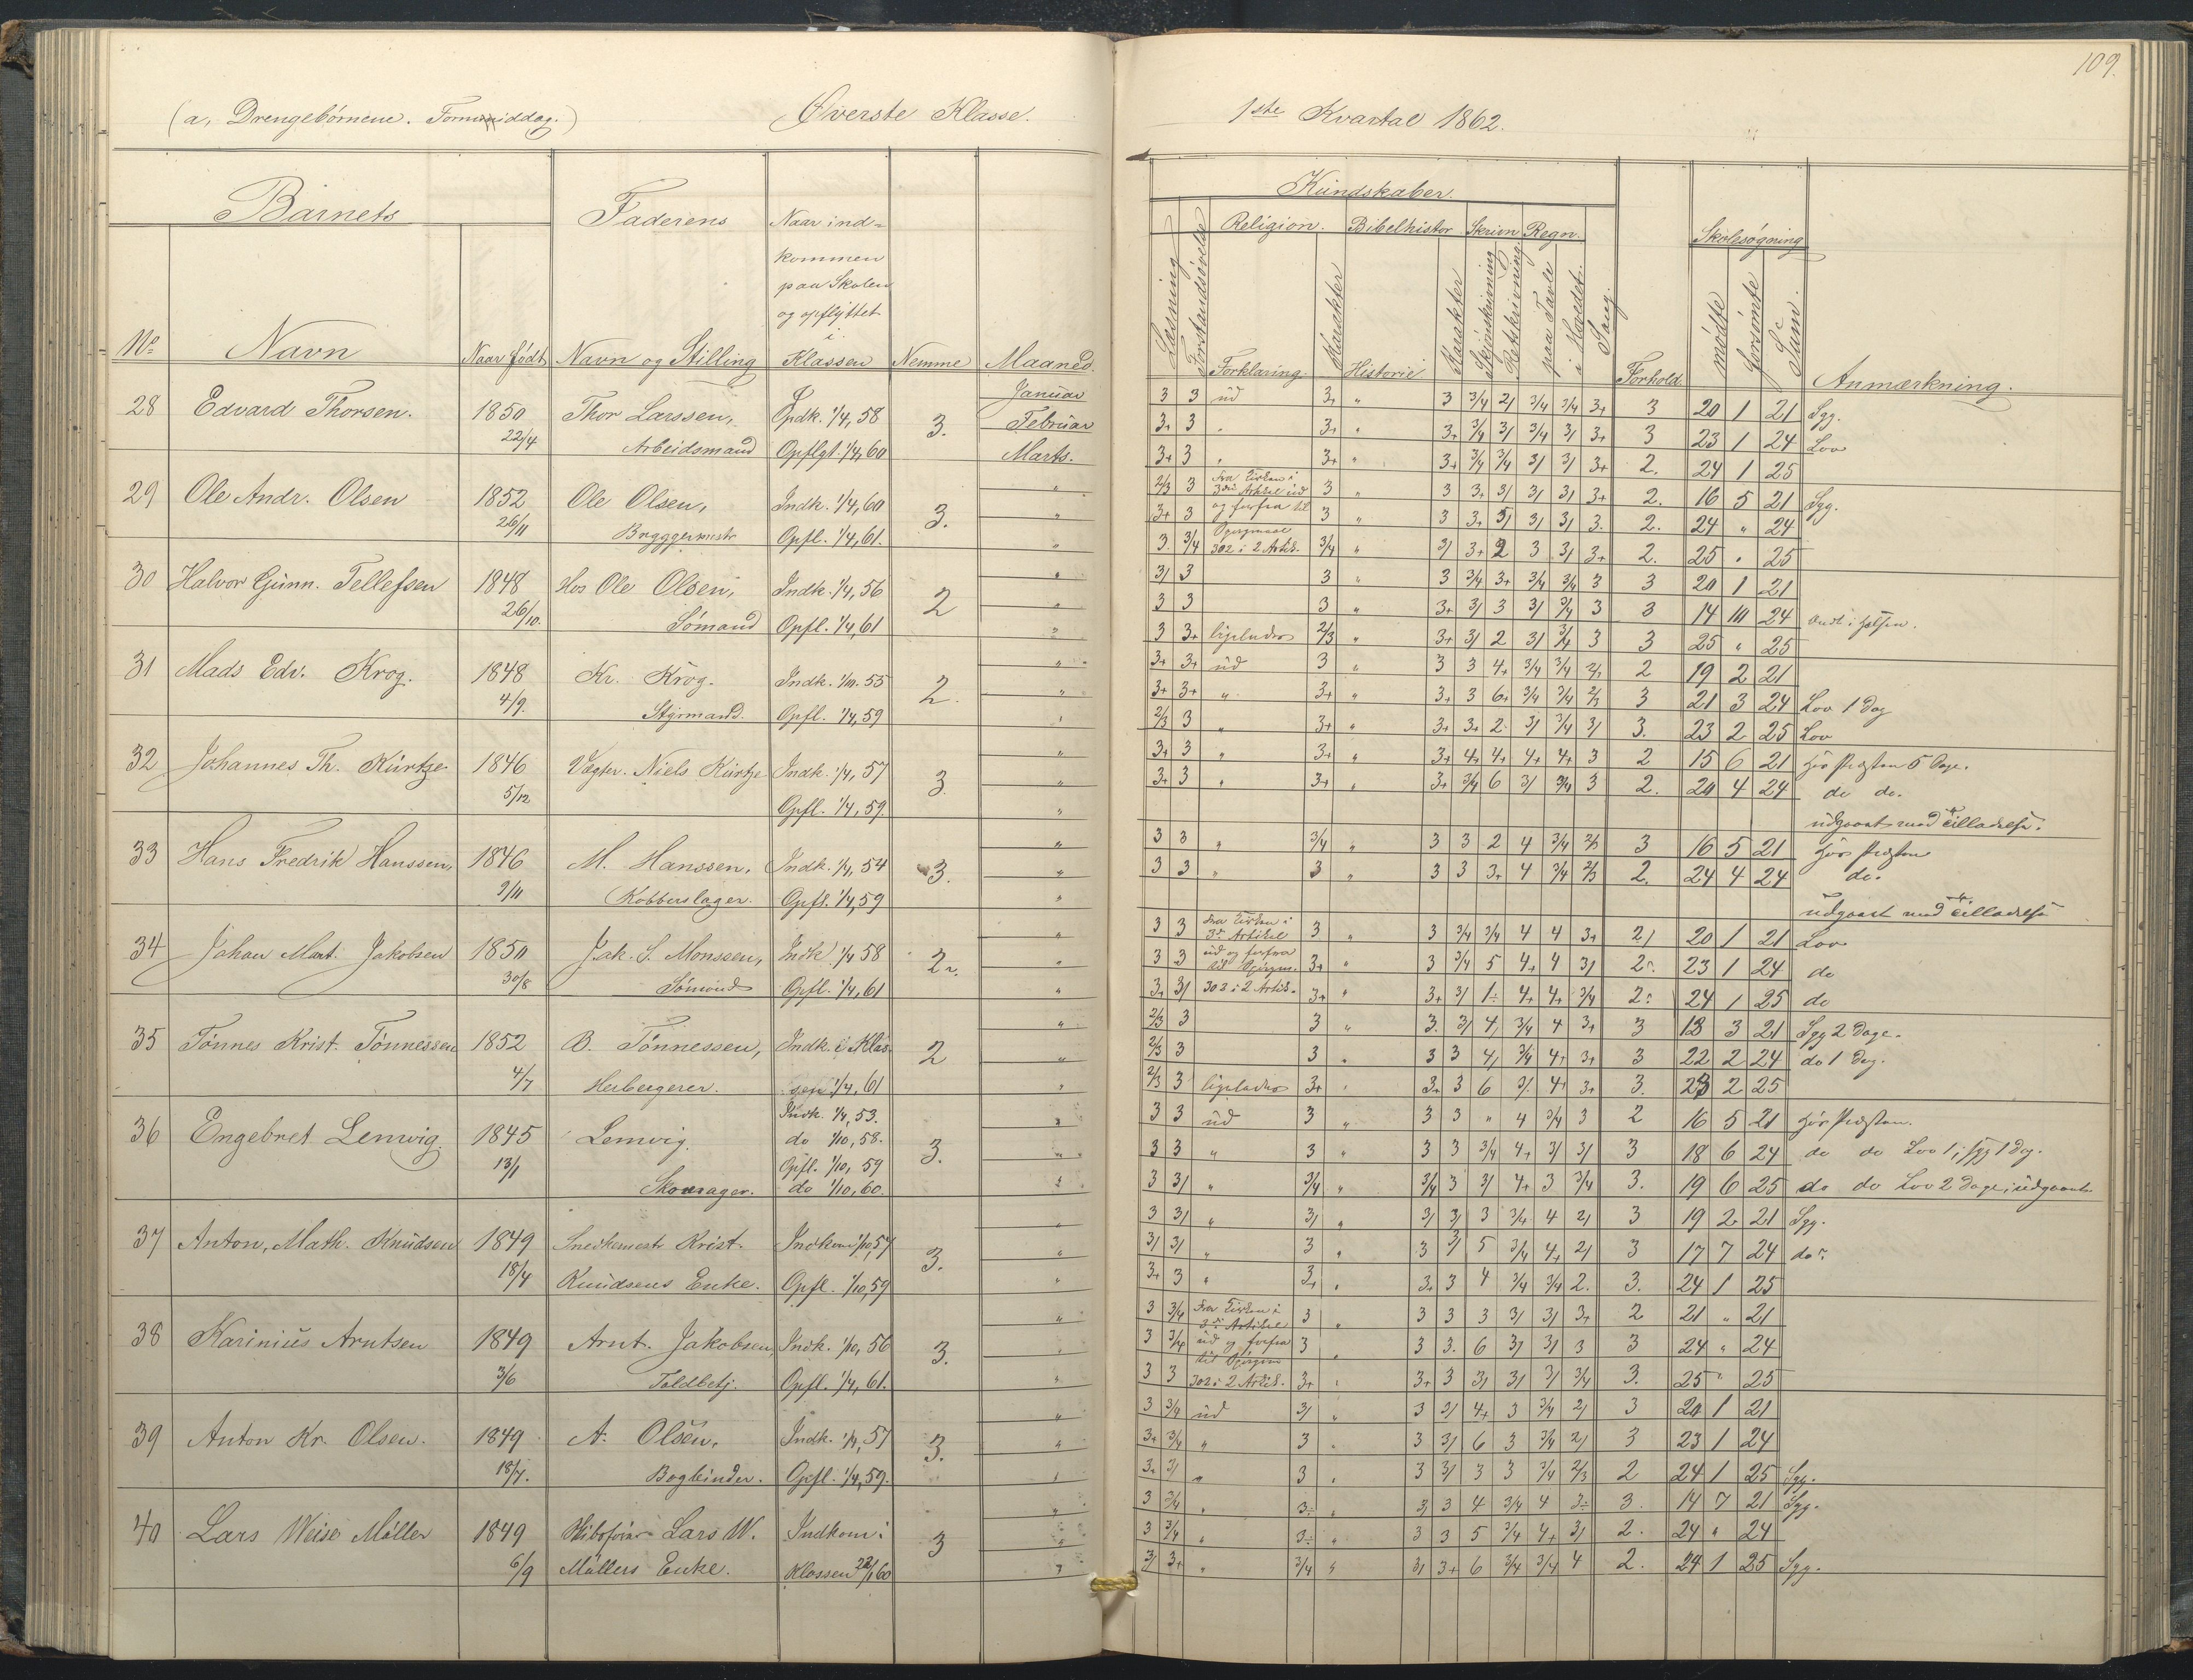 109.
(a, Drengebørnene. Formiddag.) Øverste Klasse. 1ste Kvartal 1862.
Barnets Faderens Naar ind=
kommen
paa Skolen
og opflyttet
i
No Navn Naar født Navn og Stilling Klassen Nemme Maaned.
Kundskaber.
Religion. Bibelhistor Skrivn Regn. Skolesøgning
Læsning Forstandsøvelse Forklaring Karakter Historie Karakter Skjønskrivning Retskrivning paa Tavle i Hovedet. Sang. Forhold mødte forsømte Sum. Anmærkning.
28 Edvard Thorsen. 1850 Thor Larssen, Indk. 1/4, 58 3. Januar
22/4 Arbeidsmand Opflgt. 1/4, 60 Februar
Marts.
3 3 ud 3+ " 3 3/4 2/ 3/4 3/4 3+ 3 20 1 21 Syg.
3+ 3 " 3+ " 3+ 3/4 3/ 3/4 3/ 3+ 3 23 1 24 Lov
3+ 3 " 3+ " 3+ 3/4 3/4 3/ 3/ 3+ 2. 24 1 25
29 Ole Andr. Olsen 1852 Ole Olsen, Indk. 1/4, 60 3.
26/11 Bryggermestr Opfl. 1/4, 61.
2/3 3 3die Artikel ud 3 " 3 3+ 3/ 3/ 3/ 3+ 2. 16 5 21 Syg.
3+ 3 og forfra til 3 " 3 3+ 5/ 3/ 3/ 3. 2. 24 " 24
3. 3/4 302 i 2 Artik. 3/4 " 3/ 3+ 2 3 3/ 3+ 2. 25 " 25
30 Halvor Gunn. Tellefsen 1848 Hos Ole Olsen, Indk. 1/4, 56 2
26/10. Sømand Opfl. 1/4, 61
3/ 3 3 " 3 3/4 3+ 3/4 3/4 3 3 20 1 21
3 3 3 " 3+ 3/ 3 3/ 3/4 3 3 14 10 24
3 3+ ligeledes 2/3 " 3+ 3/ 2 3/ 3/4 3 3 25 " 25
31 Mads Edv. Krog. 1848 Kr. Krog. Indk. 1/10. 55 2.
4/9. Styrmand. Opfl. 1/4, 59
3+ 3+ ud 3 " 3 3 4+ 3/4 3/4 2/3 2 19 2 21
3+ 3+ " 3+ " 3+ 3 6+ 3/4 3/4 2/3 3 21 3 24 Lov 1 Dag
2/3 3 " 3+ " 3+ 3+ 2 3/ 3/4 3/ 3. 23 2 25 Lov
32 Johannes Th. Kürtze 1846 Vægter. Niels Kürtze Indk. 1/4, 57 3.
5/12 Opfl. 1/4, 59.
3+ 3 " 3+ " 3+ 4+ 4+ 4+ 4+ 3 2 15 6 21 hos Præsten 5 Dage.
3+ 3 " 3+ " 3+ 3/4 6 3/ 3/4 3 2. 20 4 24 do do.
udgaaet med Tilladelse.
33 Hans Fredrik Hanssen, 1846 M. Hanssen, Indk. 1/4, 54 3.
9/11 Kobberslager. Opfl. 1/4, 59
3 3 " 3/4 " 3 3 2 4 3/4 2/3 3 16 5 21 hos Præsten
3 3 " 3 " 3 3 3+ 4 3/4 2/3 2. 24 4 24 do.
udgaaet med Tilladelse
34 Johan Mart. Jakobsen 1850 Jak. S. Monssen, Indk 1/4 58 2
30/8 Sømand Opfl. 1/4, 61
3 3 3die Artikel 3 " 3 3/4 3/4 4 4 3+ 2/ 20 1 21 Lov
3 3 ud og forfra 3+ " 3 3/4 5 4+ 4 3/ 2 23 1 24 do
3+ 3/ 302 i 2 Artik. 3+ " 3+ 3/ 1 4+ 4+ 3/4 2 24 1 25 do
35 Tønnes Krist. Tønnessen 1852 B. Tønnessen, Indk. i Klas- 2
4/7 Herbergerer. sen 1/4, 61
2/3 3 3 " 3. 3/ 4, 3/4 4 3+ 3 18 3 21 Syg 2 Dage.
2/3 3 3 " 3 3 4, 3/4 4+ 3+ 3 22 2 24 do 1 Dag.
2/3 3 ligeledes 3+ " 3+ 3 6 3/ 4+ 3+ 3. 23 2 25
36 Engebret Lemvig. 1845 Lemvig. Indk. 1/4, 53. 3.
13/1 do 1/10, 58.
Opfl. 1/10, 59
Skomager. do 1/10, 60.
3 3 ud 3 " 3 3 " 4 3/4 3 2 16 5 21 hos Præsten.
3 3 " 3 " 3 3 3/4 4+ 3/ 3/ 3 18 6 24 do do Lov 1; syg 1 Dag.
3 3/ " 3/4 " 3/4 3 3/ 4+ 3 3/4 3. 19 6 25 do do Lov 2 Dage; udgaaet.
37 Anton, Math. Knudsen 1849 Snedkermestr Krist. Indkom 1/10, 57 3.
18/4 Knudsens Enke. Opfl. 1/10, 59
3 3/ " 3/ " 3/ 3/ 3 3/4 4 2/ 3 19 2 21 Syg.
3/ 3/ " 3 " 3 3/ 5 3/4 4+ 2/ 3 17 7 24 do.
3+ 3 " 3+ " 3+ 3 4 3/4 3/4 2. 3. 24 1 25
38 Karinius Arntsen 1849 Arnt. Jakobsen, Indk. 1/10, 56 3.
3/6 Toldbetj. Opfl. 1/4, 61.
3 3/4 3die Artikel 3 " 3 3 3 3/ 3/ 3+ 2 21 " 21
3 3/4 ud og forfra 3 " 3 3. 6 3/ 3/ 3 3 24 " 24
3 3 302 i 2 Artik. 3+ " 3+ 3 3/ 3/ 3/ 3/4 3. 25 " 25
39 Anton Kr. Olsen. 1849 A. Olsen, Indk. 1/4, 57 3.
18/7. Bogbinder. Opfl. 1/4, 59.
3 3/4 ud 3/ " 3 3/ 4+ 3 3/4 2/ 3 20 1 21
3+ 3/4 " 3 " 3 3/ 6 3 3/4 2/ 3 23 1 24
3+ 3/ " 3 " 3 3/ 3 3 3/4 2/3 2 24 1 25 Syg.
40 Lars Weise Møller 1849 Lars W. Indkom i 3
6/9 Møllers Enke. Klassen 22/1 60
3 3/4 " 3÷ " 3/ 3 4 3/4 4 3÷ 3. 14 7 21 Syg.
3 3/4 " 3÷ " 3 3 5 3/4 4+ 3/ 2. 24 " 24
3/ 3+ " 3/4 " 3/ 3+ 6 3/4 3/4 4 2. 24 1 25 Syg.